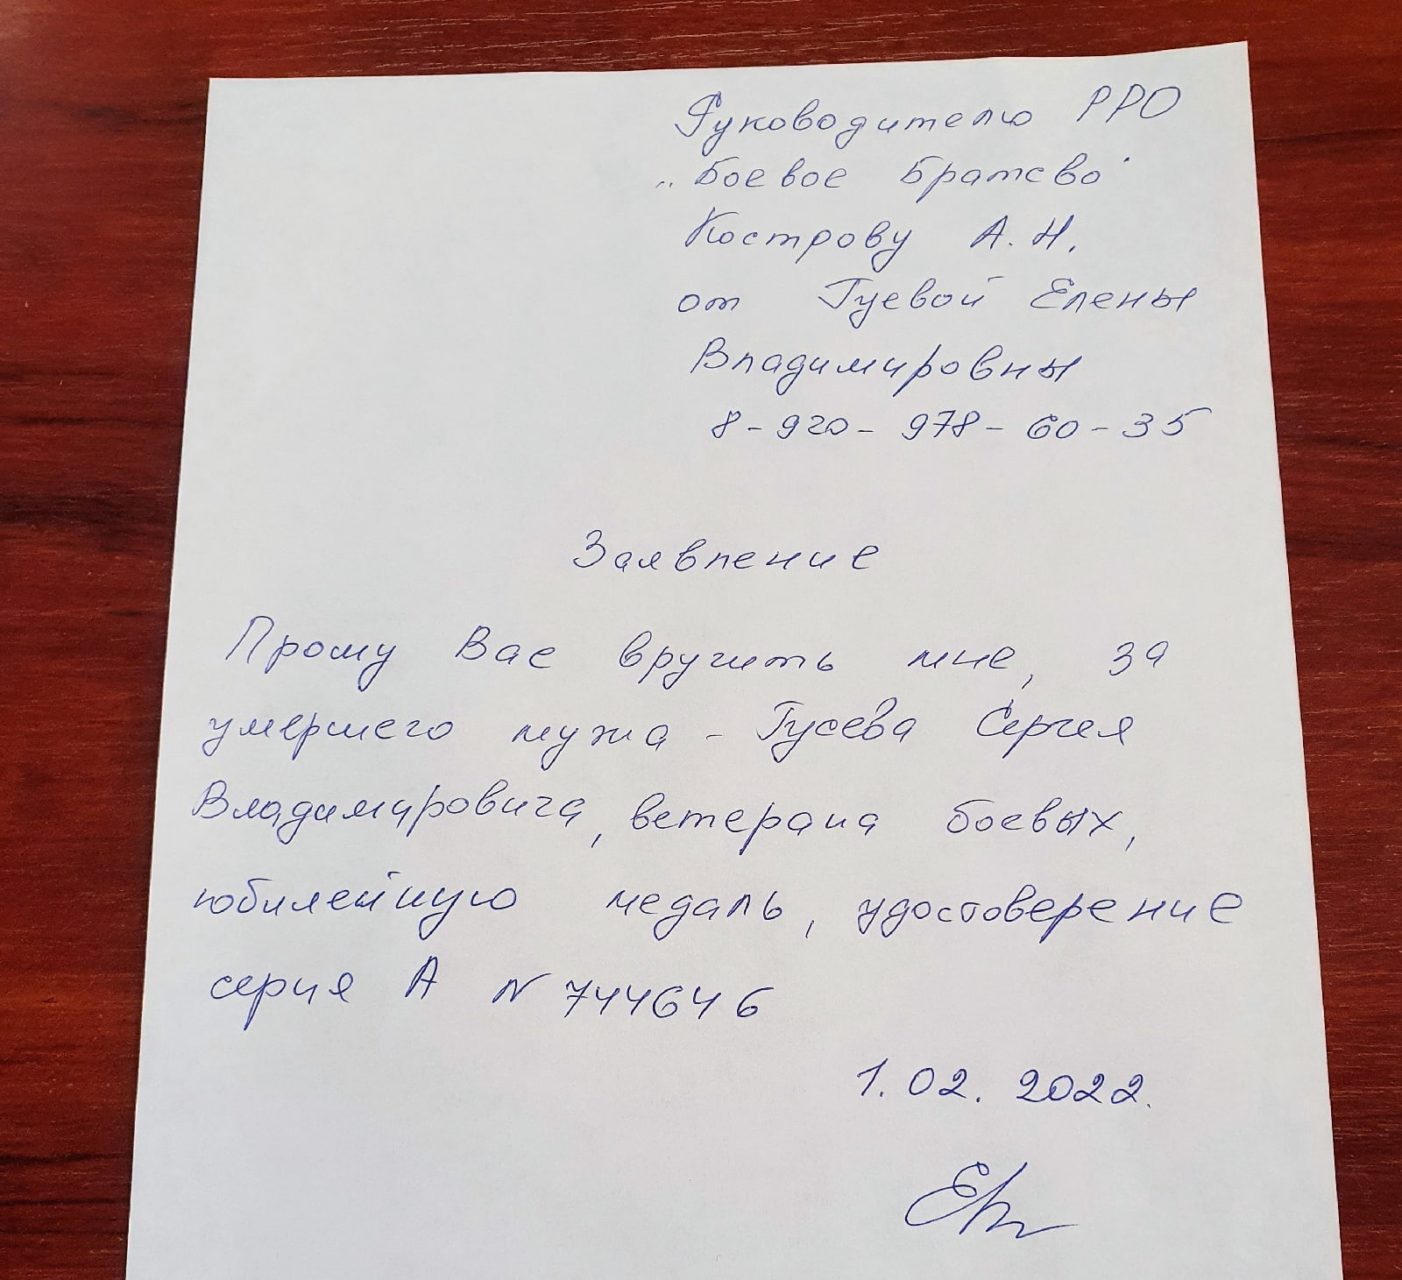 Руководителю РРО
„Боевое Братсво"
Кострову А.Н.
от Гуевой Елены
Владимировны
8-920-978-60-35
Заявление
Прошу Вас вручить мне, за
умершего мужа - Гусева Сергея
Владимировича, ветерана боевых,
юбилейную медаль, удостоверение
серия А N 744646
1.02.2022.